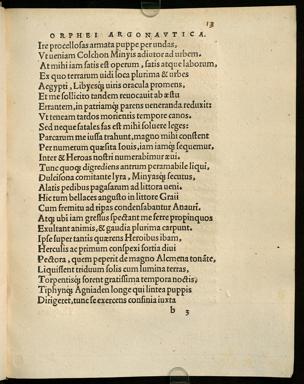 13
ORPHEI ARGONAVTICA.
Ire procellosas armata puppe per undas,
Vt ueniam Colchon Minyis adiutor ad urbem.
At mihi iam satis est operum, satis atque laborum,
Ex quo terrarum uidi loca plurima & urbes
Aegypti, Libyesq; uiris oracula promens,
Et me sollicito tandem reuocauit ab æstu
Errantem, in patriamq; parens ueneranda reduxit:
Vt teneam tardos morientis tempore canos.
Sed neque fatales fas est mihi soluere leges:
Parcarum me iussa trahunt, magno mihi constent
Per numerum quæsita Iouis, iam iamq; sequemur,
Inter & Heroas nostri numerabimur æui.
Tunc quoq; digrediens antrum peramabile liqui,
Dulcisona comitante lyra, Minyasq; secutus,
Alatis pedibus pagasarum ad littora ueni.
Hic tum bellaces augusto in littore Graii
Cum fremitu ad ripas condensabantur Anaurī.
Atq; ubi iam gressus spectant me ferre propinquos
Exultant animis, & gaudia plurima carpunt.
Ipse super tantis quærens Heroibus ibam,
Herculis ac primum conspexi fortia diui
Pectora, quem peperit de magno Alcmena tonāte,
Liquissent triduum solis cum lumina terras,
Torpentisq; forent gratissima tempora noctis,
Tiphynq; Agniaden longe qui lintea puppis
Dirigeret, tunc se exercens confinia iuxta
b 3